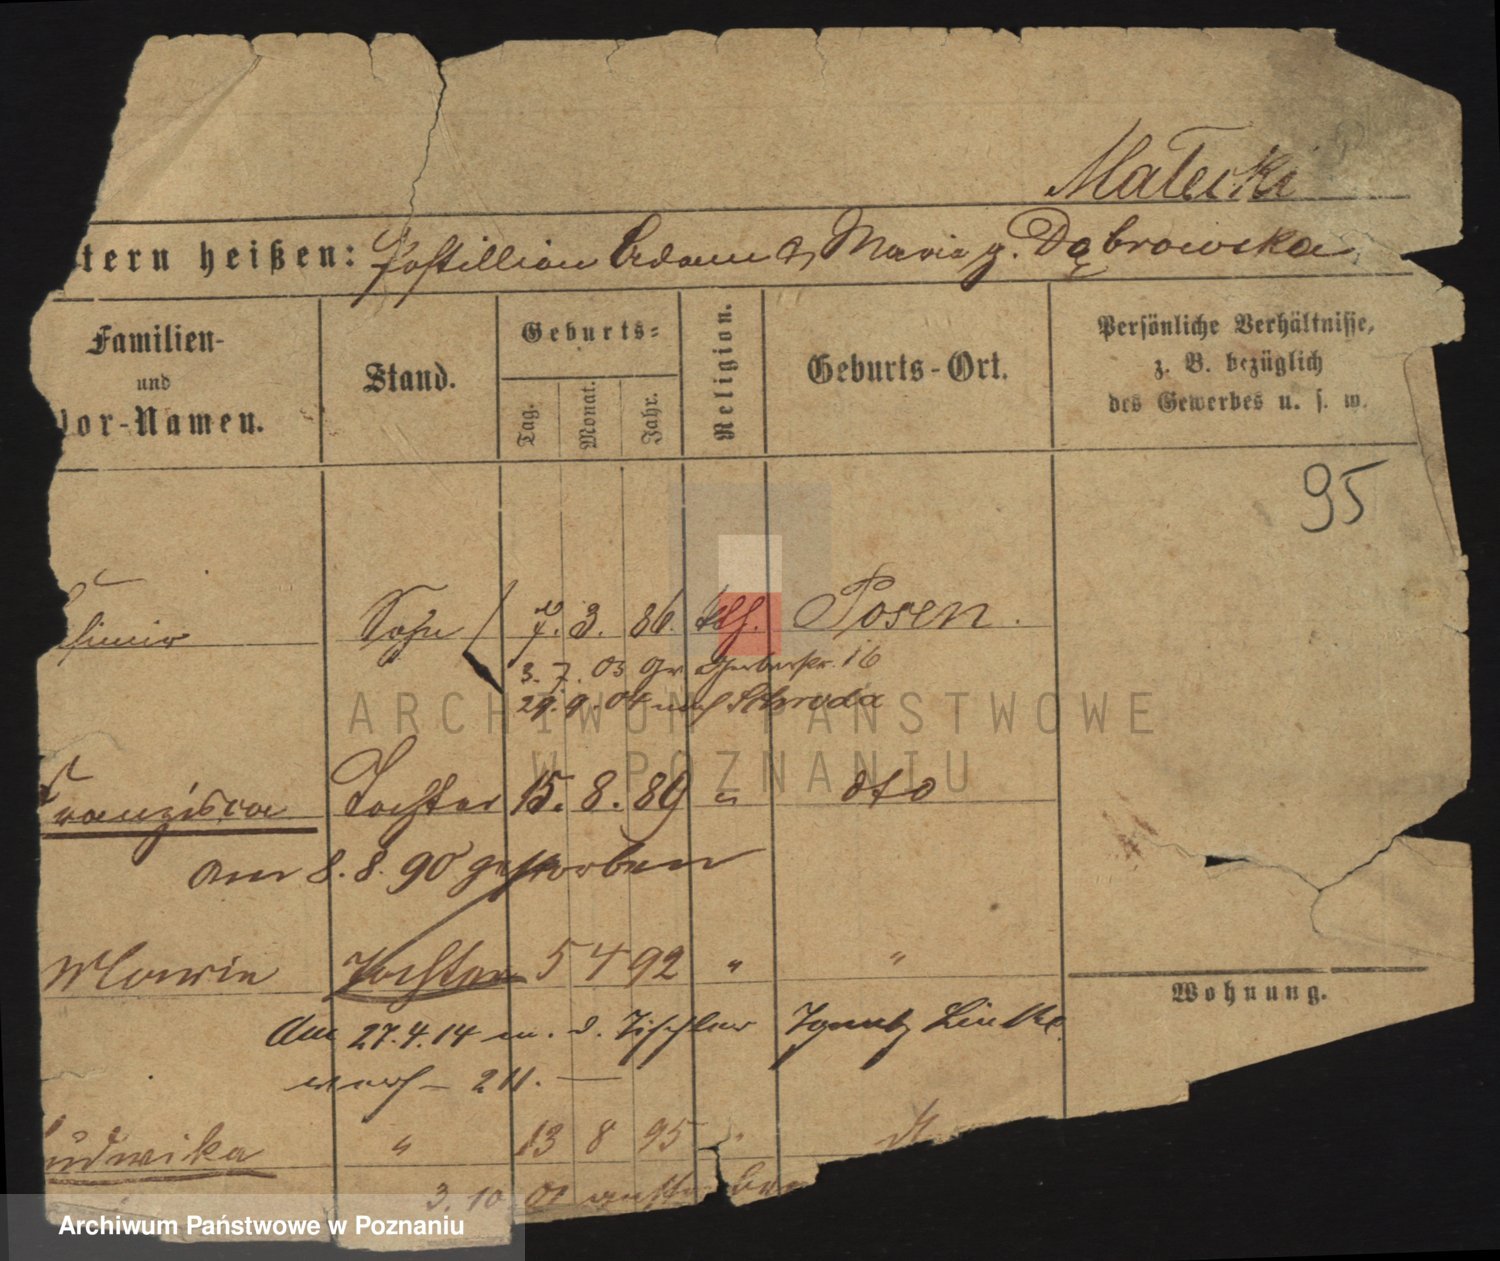 Małecki
tern heißen: Postillion Adam & Maria g. Dąbrowska
Familien-
und
Vor-Namen.
Stand.
Geburts-
Tag.
Monat.
Jahr.
Religion.
Geburts-Ort.
Persönliche Verhältnisse,
z. B. bezüglich
des Gewerbes u. s. w.
95
Sohn 7. 3. 86. kth. Posen.
3. 7. 03 Gr Gerberstr. 16
29. 9. 04 nach Schroda
Franzisca Tochter 15. 8. 89 " dto
am 8. 8. 90 gestorben
Marie Tochter 5 4 92 " "
Wohnung.
Am 27.4.14 m. d. Tischler Ignatz Linke
nach – 211. —
Ludwika " 13 8 95 "
3. 10 01 gestorben
ARCHIWUM PAŃSTWOWE
W POZNANIU
Archiwum Państwowe w Poznaniu